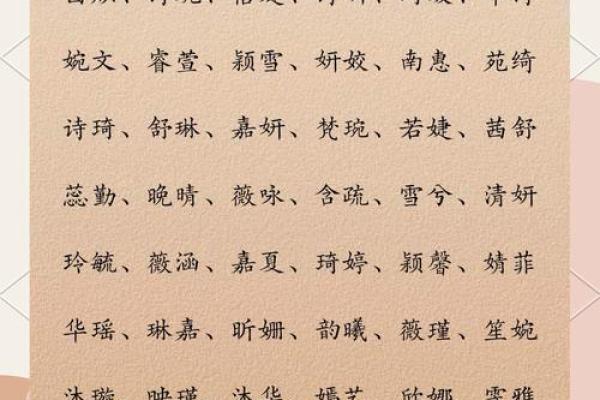 婉文、睿萱、颖雪、妍姣、南惠、苑绮
诗琦、舒琳、嘉妍、梵琬、若婕、茜舒
蕊勤、晚晴、薇咏、含疏、雪兮、清妍
玲毓、薇涵、嘉夏、琦婷、颖馨、婧菲
华瑶、琳嘉、昕姗、韵曦、薇瑾、笙婉
沐璇、映瑾、沐华、嫣艺、欣娜、雯雅